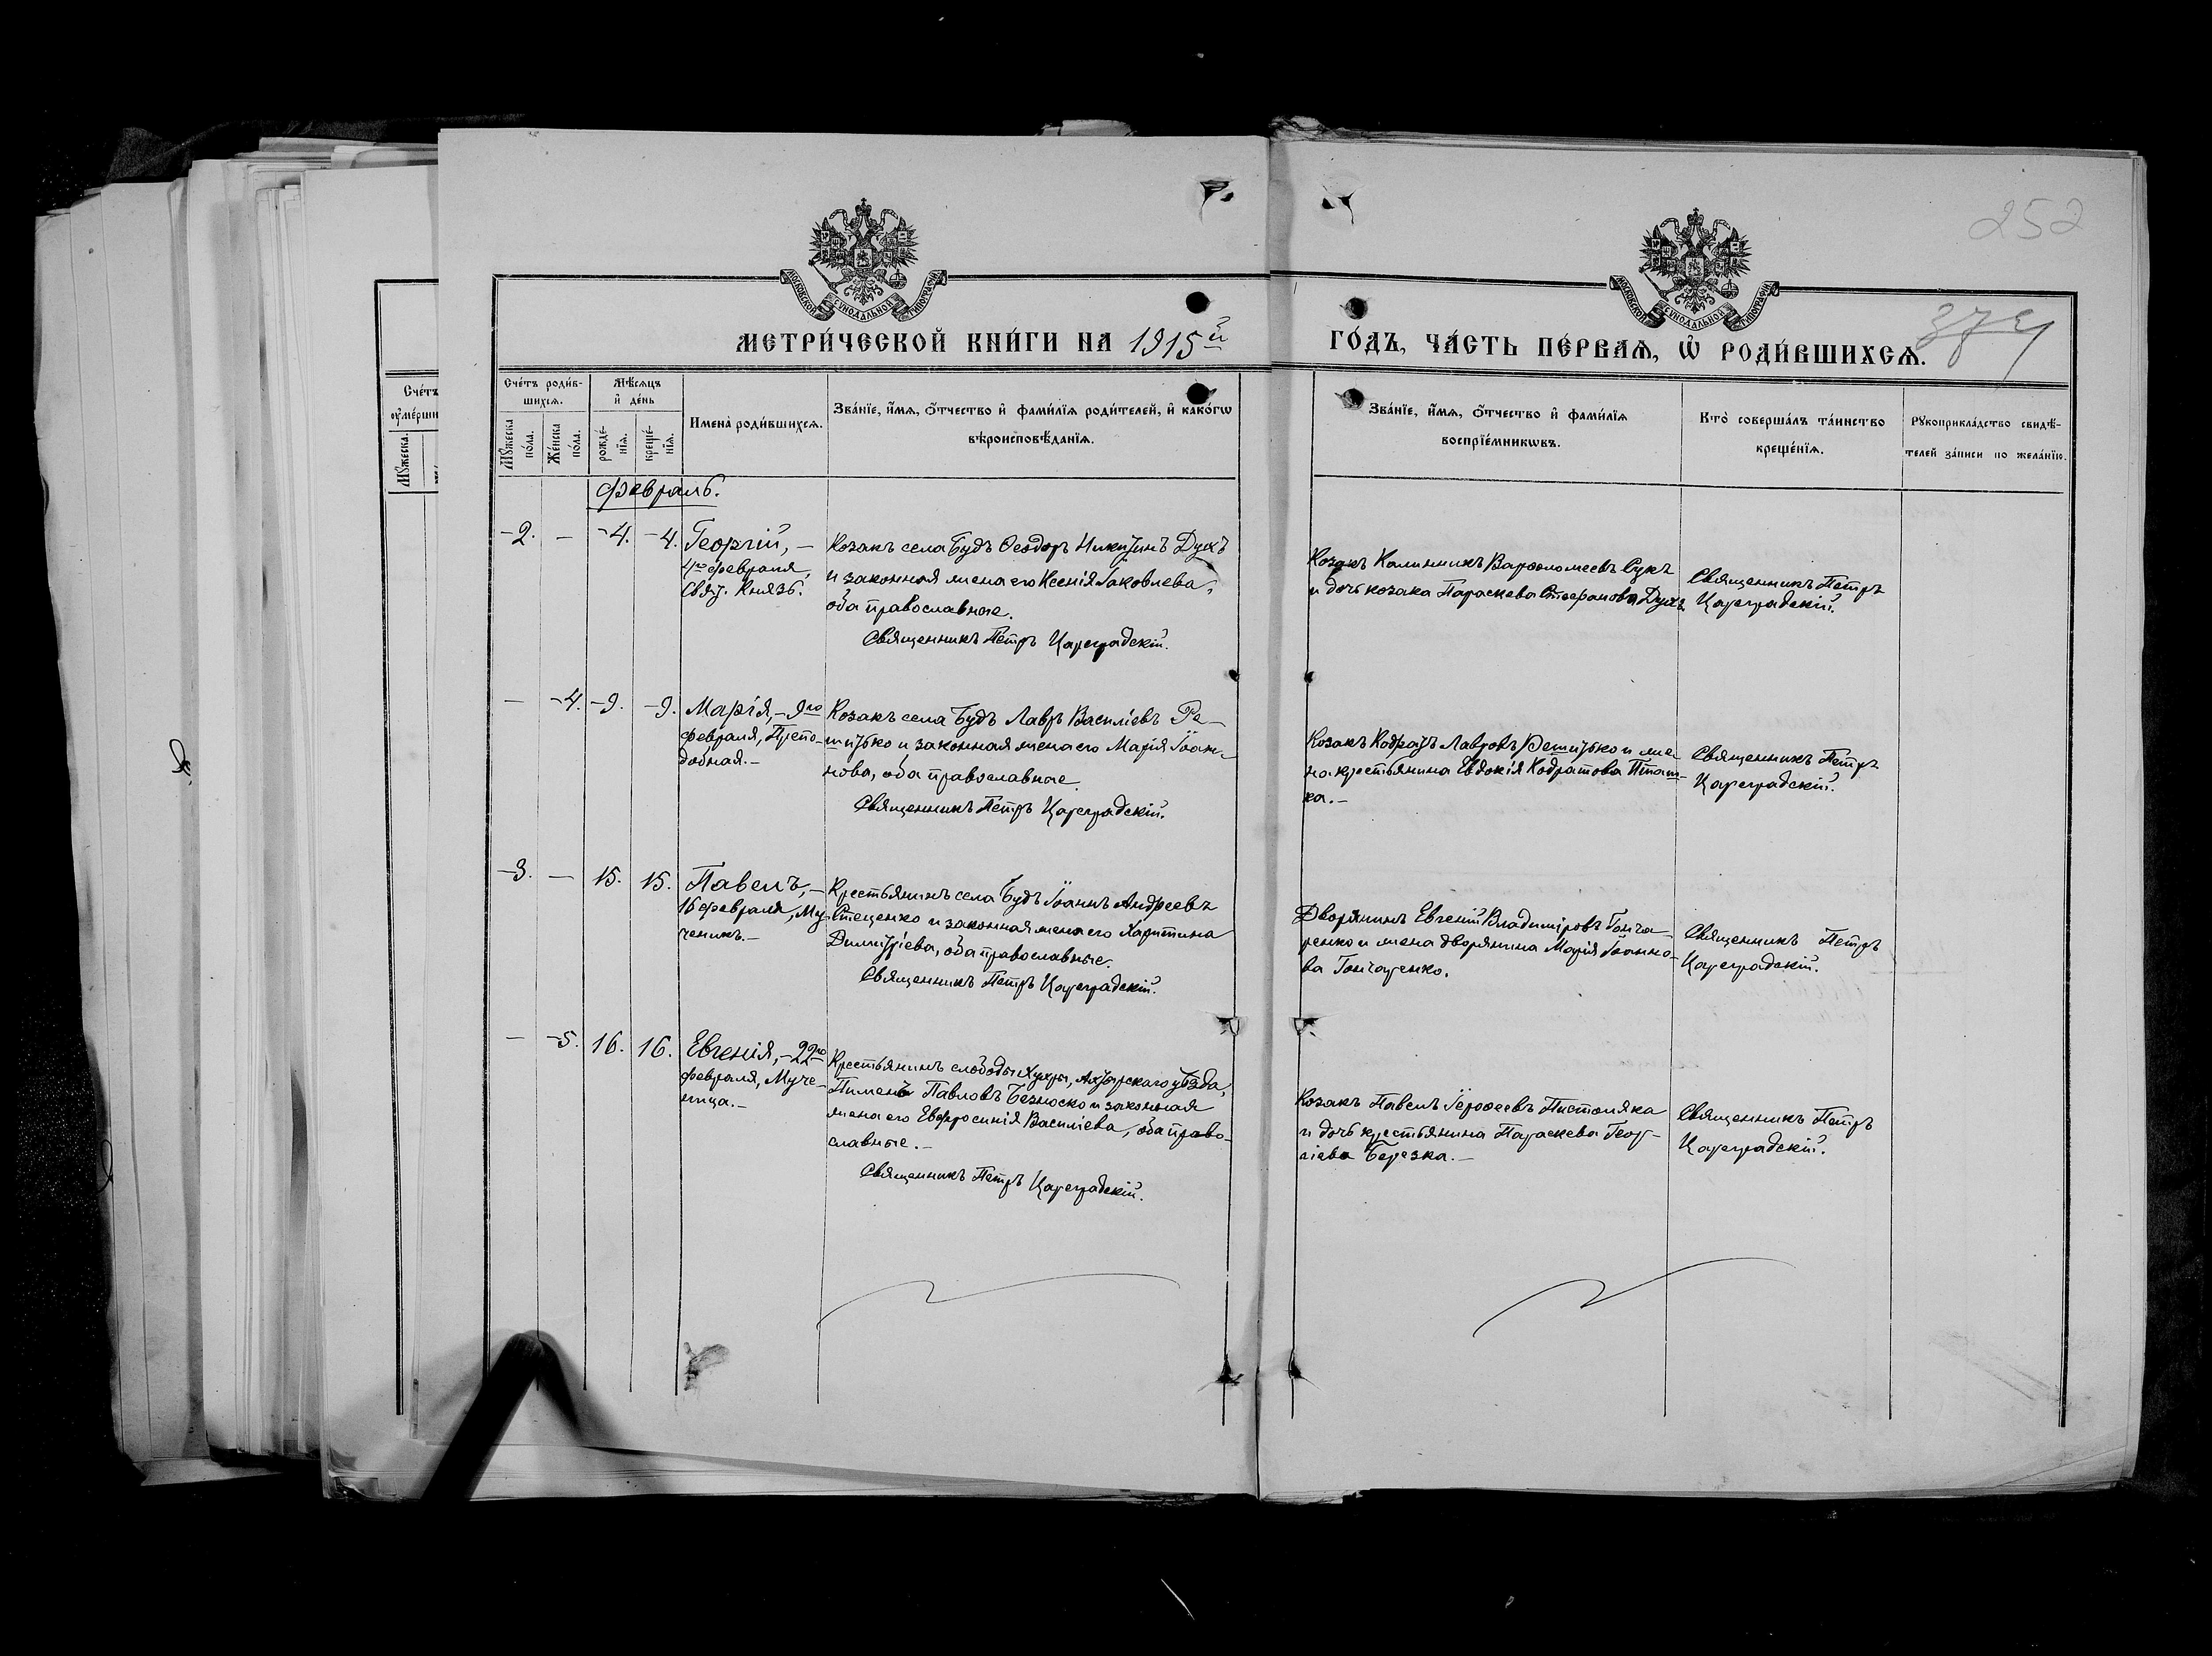 252
374
МОСКОВСКОЙ СУНОДАЛЬНОЙ ТИПОГРАФІИ
МОСКОВСКОЙ СУНОДАЛЬНОЙ ТИПОГРАФІИ
МЕТРИ́ЧЕСКОЙ КНИ́ГИ НА 1915й
ГО́ДЪ, ЧА́СТЬ ПЕ́РВАѦ, Ѡ҆ РОДИ́ВШИХСѦ.
Сче́тъ
ᲂу҆ме́рши
Мꙋ́жеска.
Сче́тъ роди́в-
шихсѧ.
Мꙋ́жеска
по́ла.
Же́нска
по́ла.
Мѣ́сѧцъ
и҆ де́нь
рожде́-
нїѧ.
креще́-
нїѧ.
И҆мена̀ роди́вшихсѧ.
Зва́нїе, и҆́мѧ, ѻ҆́тчество и҆ фами́лїѧ роди́телей, и҆ како́гѡ
вѣроисповѣ́данїѧ.
Зва́нїе, и҆́мѧ, ѻ҆́тчество и҆ фами́лїѧ
воспрїе́мникѡвъ.
Кто̀ соверша́лъ та́инство
креще́нїѧ.
Рꙋкоприкла́дство свидѣ́-
телей за́писи по жела́нїю.
Февраль.
-2. — -4. -4.
Георгій, —
4го февраля,
Свят. Князь.
Козакъ села Будъ Ѳеодоръ Никитинъ Духъ
и законная жена его Ксенія Іаковлева,
оба православные.
Священникъ Петръ Цареградскій.
Козакъ Калинникъ Варѳоломеевъ Сукъ
и дочь козака Параскева Стефанова Духъ
Священникъ Петръ
Цареградскій.
— -4. -9. -9.
Марія, - 9го
февраля, Препо-
добная. -
Козакъ села Будъ Лавръ Василіевъ Ре-
шитько и законная жена его Марія Іоан-
нова, оба православные.
Священникъ Петръ Цареградскій.
Козакъ Кодратъ Лавровъ Решитько и же-
на крестьянина Евдокія Кодратова Пташ-
ка. -
Священникъ Петръ
Цареградскій.
-3. — 15. 15.
Павелъ, —
16 февраля, Му-
ченикъ. -
Крестьянинъ села Будъ Іоаннъ Андреевъ
Стеценко и законная жена его Харитина
Димитріева, оба православные.
Священникъ Петръ Цареградскій.
Дворянинъ Евгеній Владиміровъ Гонча-
ренко и жена дворянина Марія Іоанно-
ва Гончаренко.
Священникъ Петръ
Цареградскій.
— -5. 16. 16.
Евгенія, - 22го
февраля, Муче-
ница. -
Крестьянинъ слободы Хухры, Ахтырскаго уѣзда,
Пименъ Павловъ Безноско и законная
жена его Евфросинія Василіева, оба право-
славные. -
Священникъ Петръ Цареградскій.
Козакъ Павелъ Іероѳеевъ Пистоляка
и дочь крестьянина Параскева Геор-
гіева Березка. -
Священникъ Петръ
Цареградскій.